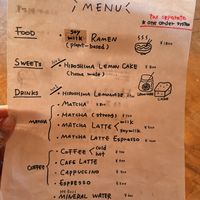 MENU
Tax separate
& one order system
FOOD
Soy
milk RAMEN
(plant-based)
SWEETS
HIROSHIMA LEMON CAKE
(home made)
DRINKS
HIROSHIMA LEMONADE
MATCHA
MATCHA
MATCHA (strong)
MATCHA LATTE milk
soymilk
MATCHA LATTE ESPRESSO
COFFEE
COFFEE cold
hot
CAFE LATTE
CAPPUCCINO
ESPRESSO
MINERAL WATER